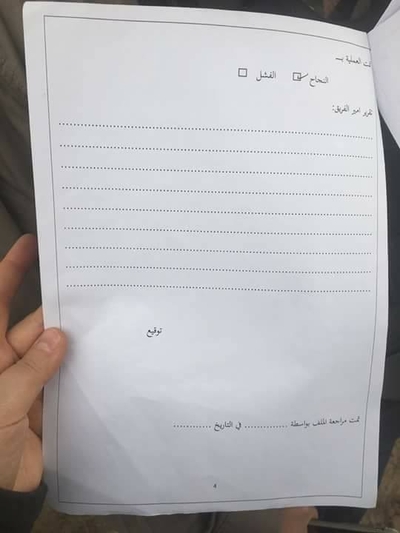 تمت العملية بـــ
النجاح ☑ الفشل ☐
تقرير امير الفريق:
توقيع
تمت مراجعة الملف بواسطة ............. في التاريخ ............
4